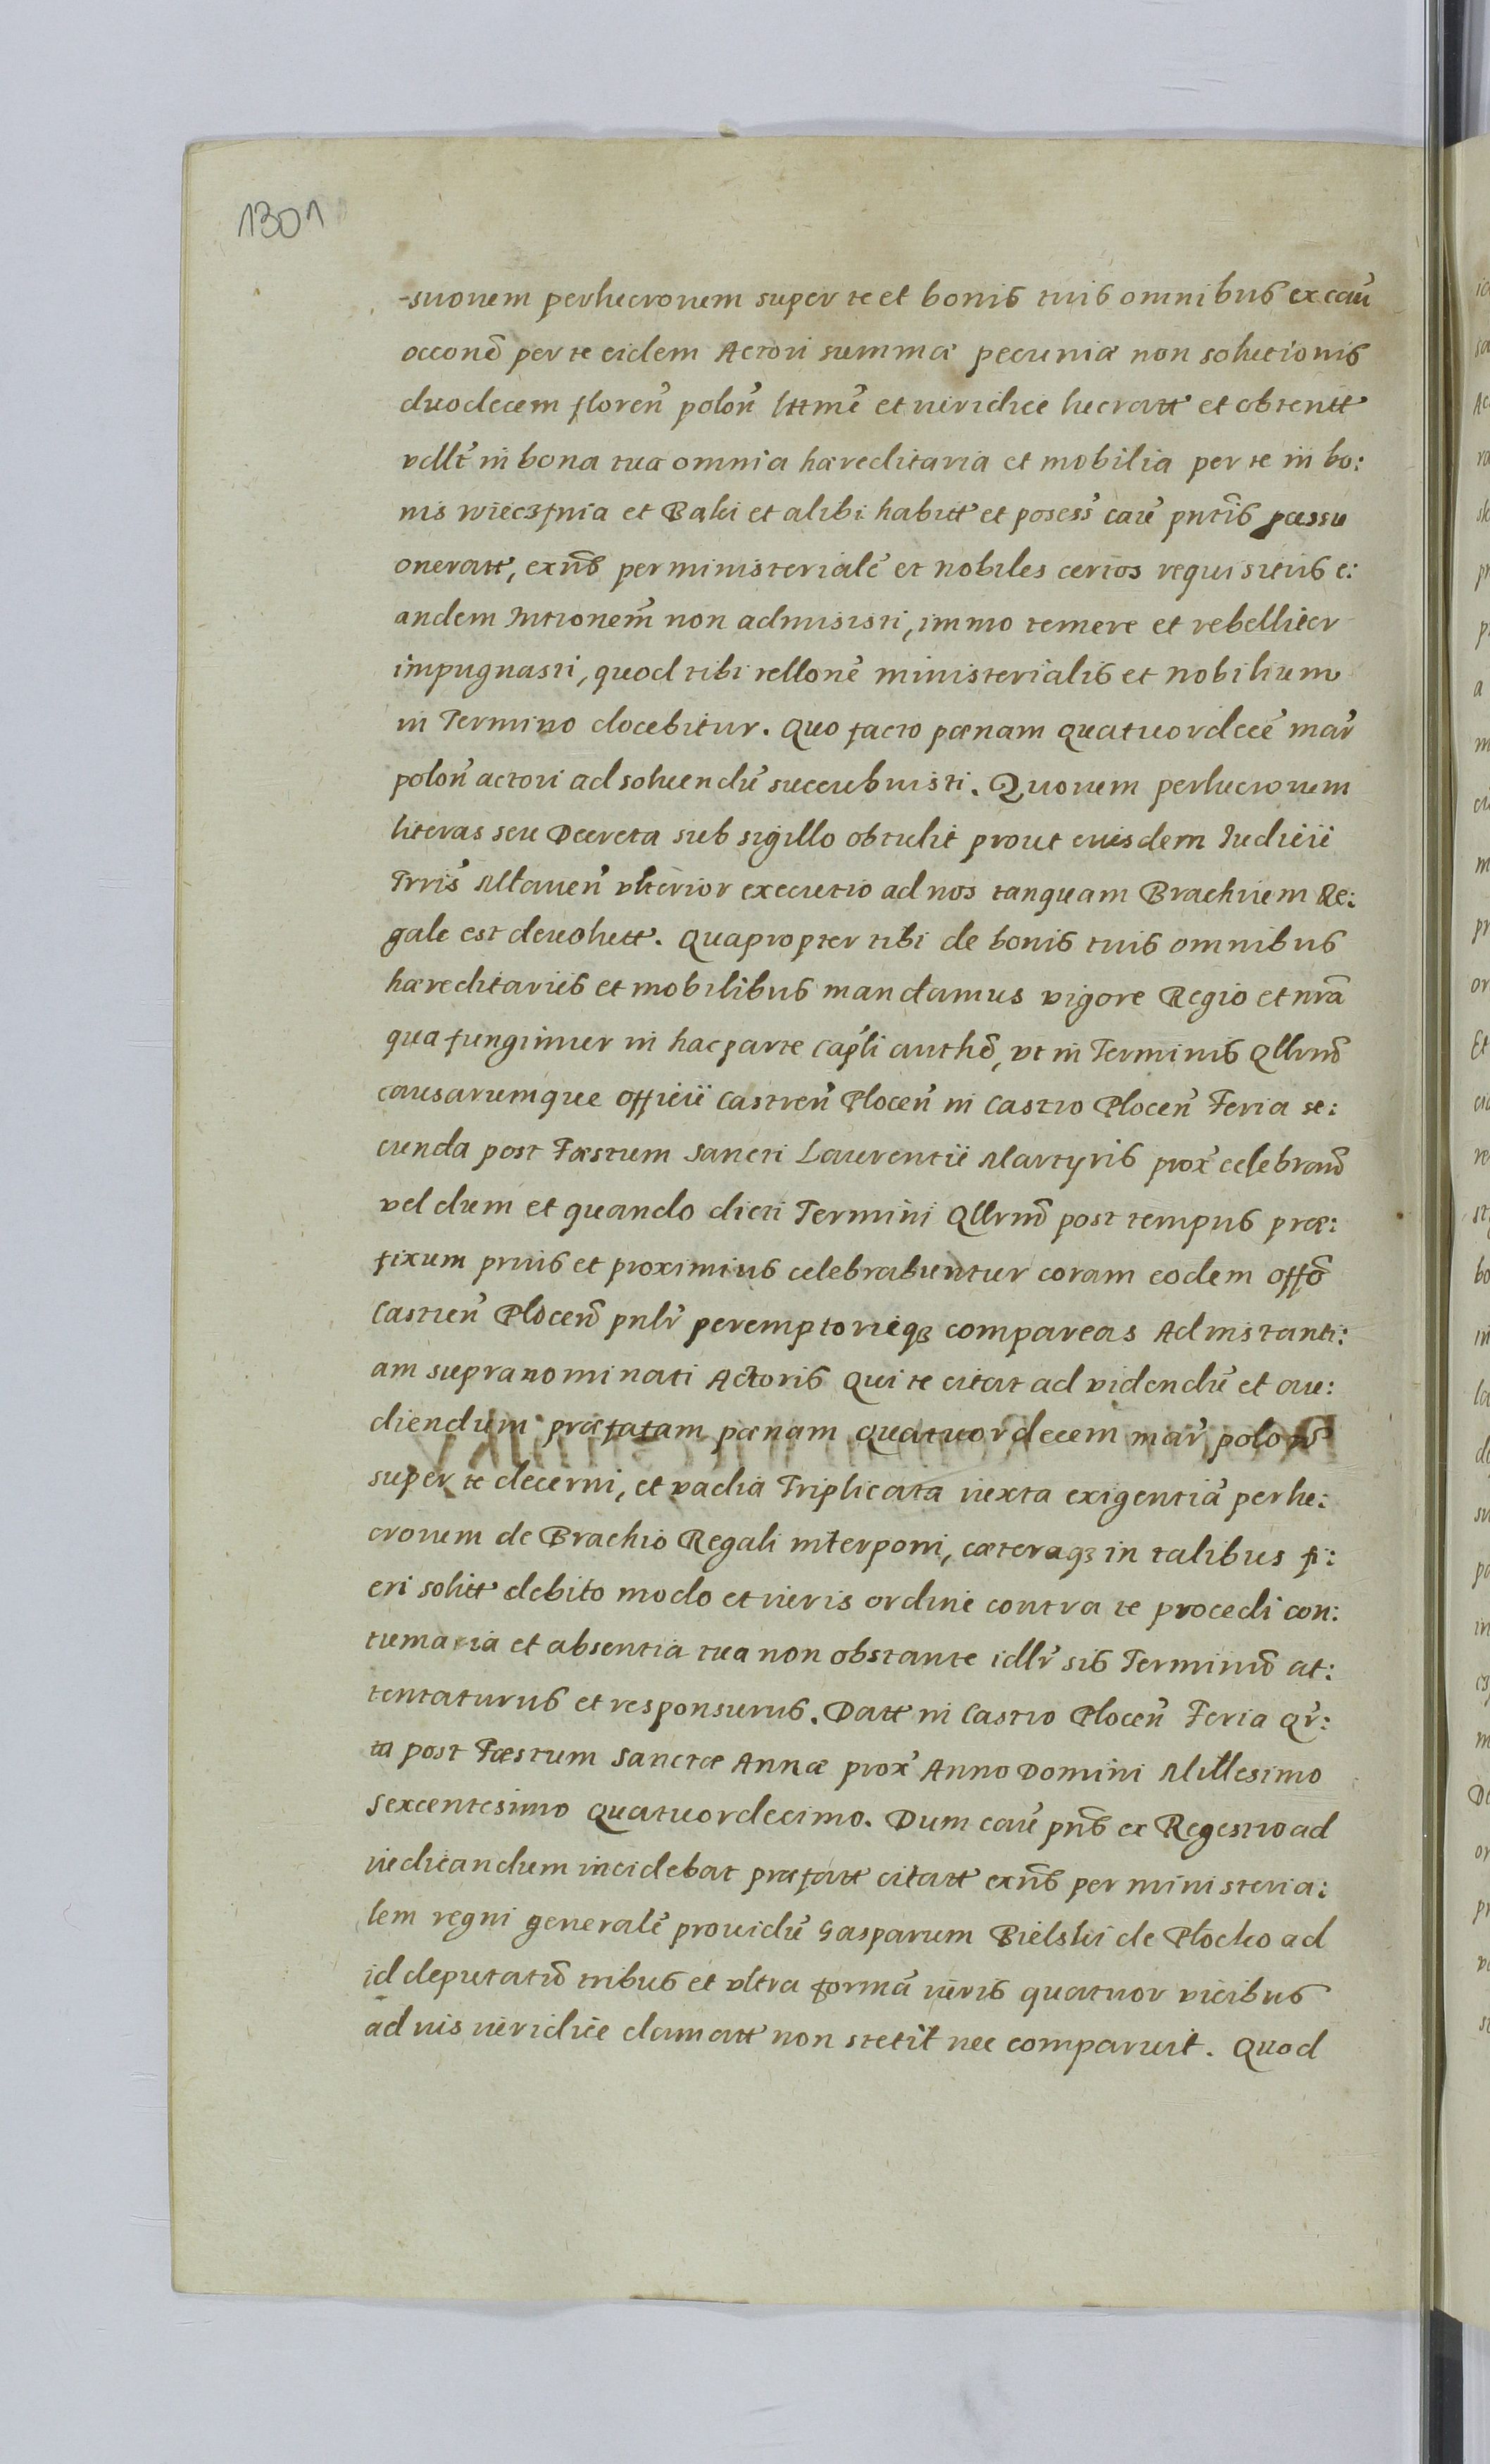 1301
-suorum perlucrorum super te et bonis tuis omnibus ex cau͂
occone͂ per te eidem Actori summæ pecuniæ non solutionis
duodecem floren͂ polon͂ lttme͂ et iuridice lucratt et obtentt
vellt͂ in bona tua omnia hæreditaria et mobilia per te in bo:
nis wieczfnia et Bąki et alibi habitt et posess͂ cau͂ pntis͂ passu
oneratt, exn͂s per ministeriale͂ et nobiles certos requisitus e:
andem Intronem͂ non admisisti, immo temere et rebelliter
impugnasti, quod tibi rellone͂ ministerialis et nobilium
in Termino docebitur. Quo facto pænam quatuordece͂ mar͂
polon͂ actori ad soluendu͂ succubuisti. Quorum perlucrorum
literas seu Decreta sub sigillo obtulit prout eiusdem Iudicii
Trris͂ Mlauen͂ vlterior executio ad nos tanquam Brachium Re:
gale est deuolutt. Quapropter tibi de bonis tuis omnibus
hæreditariis et mobilibus mandamus vigore Regio et nra͂
qua fungimur in hac parte Capli͂ autho͂, vt in Terminis Qllrnd͂
causarumque officii Castren͂ Plocen͂ in Castro Plocen͂ Feria se:
cunda post Fæstum Sancti Laurentii Martyris prox͂ celebrand͂
vel dum et quando dicti Termini Qllrnd͂ post tempus præ:
fixum prius et proximius celebrabuntur coram eodem offo͂
Castren͂ Plocen͂ pnlr͂ peremptorieqꝫ compareas Ad instanti:
am supranominati Actoris qui te citat ad videndu͂ et au:
diendum præfatam pænam quatuordecem mar͂ polon͂
super te decerni, et vadia Triplicata iuxta exigentia͂ perlu:
crorum de Brachio Regali interponi, cæteraqꝫ in talibus fi:
eri solitt debito modo et iuris ordine contra te procedi con:
tumacia et absentia tua non obstante idlr͂ sis Terminu͂ at:
tentaturus et responsurus. Datt in Castro Plocen͂ Feria Qr͂:
ta post Fæstum Sanctæ Annæ prox͂ Anno Domini Millesimo
Sexcentesimo Quatuordecimo. Dum cau͂ pn͂s ex Regestro ad
iudicandum incidebat præfatt citatt exn͂s per ministeria:
lem regni generale͂ prouidu͂ Gasparum Bielski de Płocko ad
id deputatu͂ tribus et vltra forma͂ iuris quatuor vicibus
ad ius iuridice clamatt non stetit nec comparuit. Quod